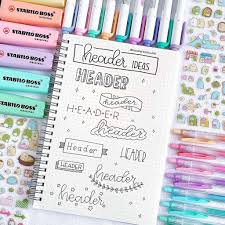 STABILO BOSS
ORIGINAL
STABILO BOSS
ORIGINAL
STABILO BOSS
STABILO BOSS
header IDEAS
HEADER
header
H-E-A-D-E-R
header
header
HEADER
HEADER
header
header